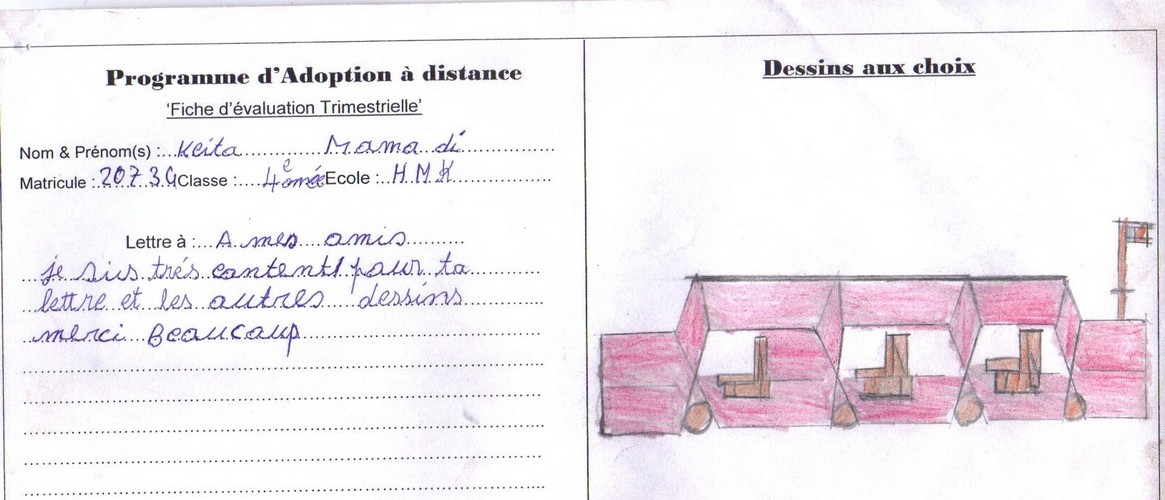 Programme d'Adoption à distance
'Fiche d'évaluation Trimestrielle'
Nom & Prénom(s) :...Keita..............Mama di..............
Matricule :.2073G Classe :....4e année Ecole :..HMK..............
Lettre à :...A mes amis..........
je suis trés contentl pour ta
lettre et les autres dessins
merci Beaucoup
Dessins aux choix